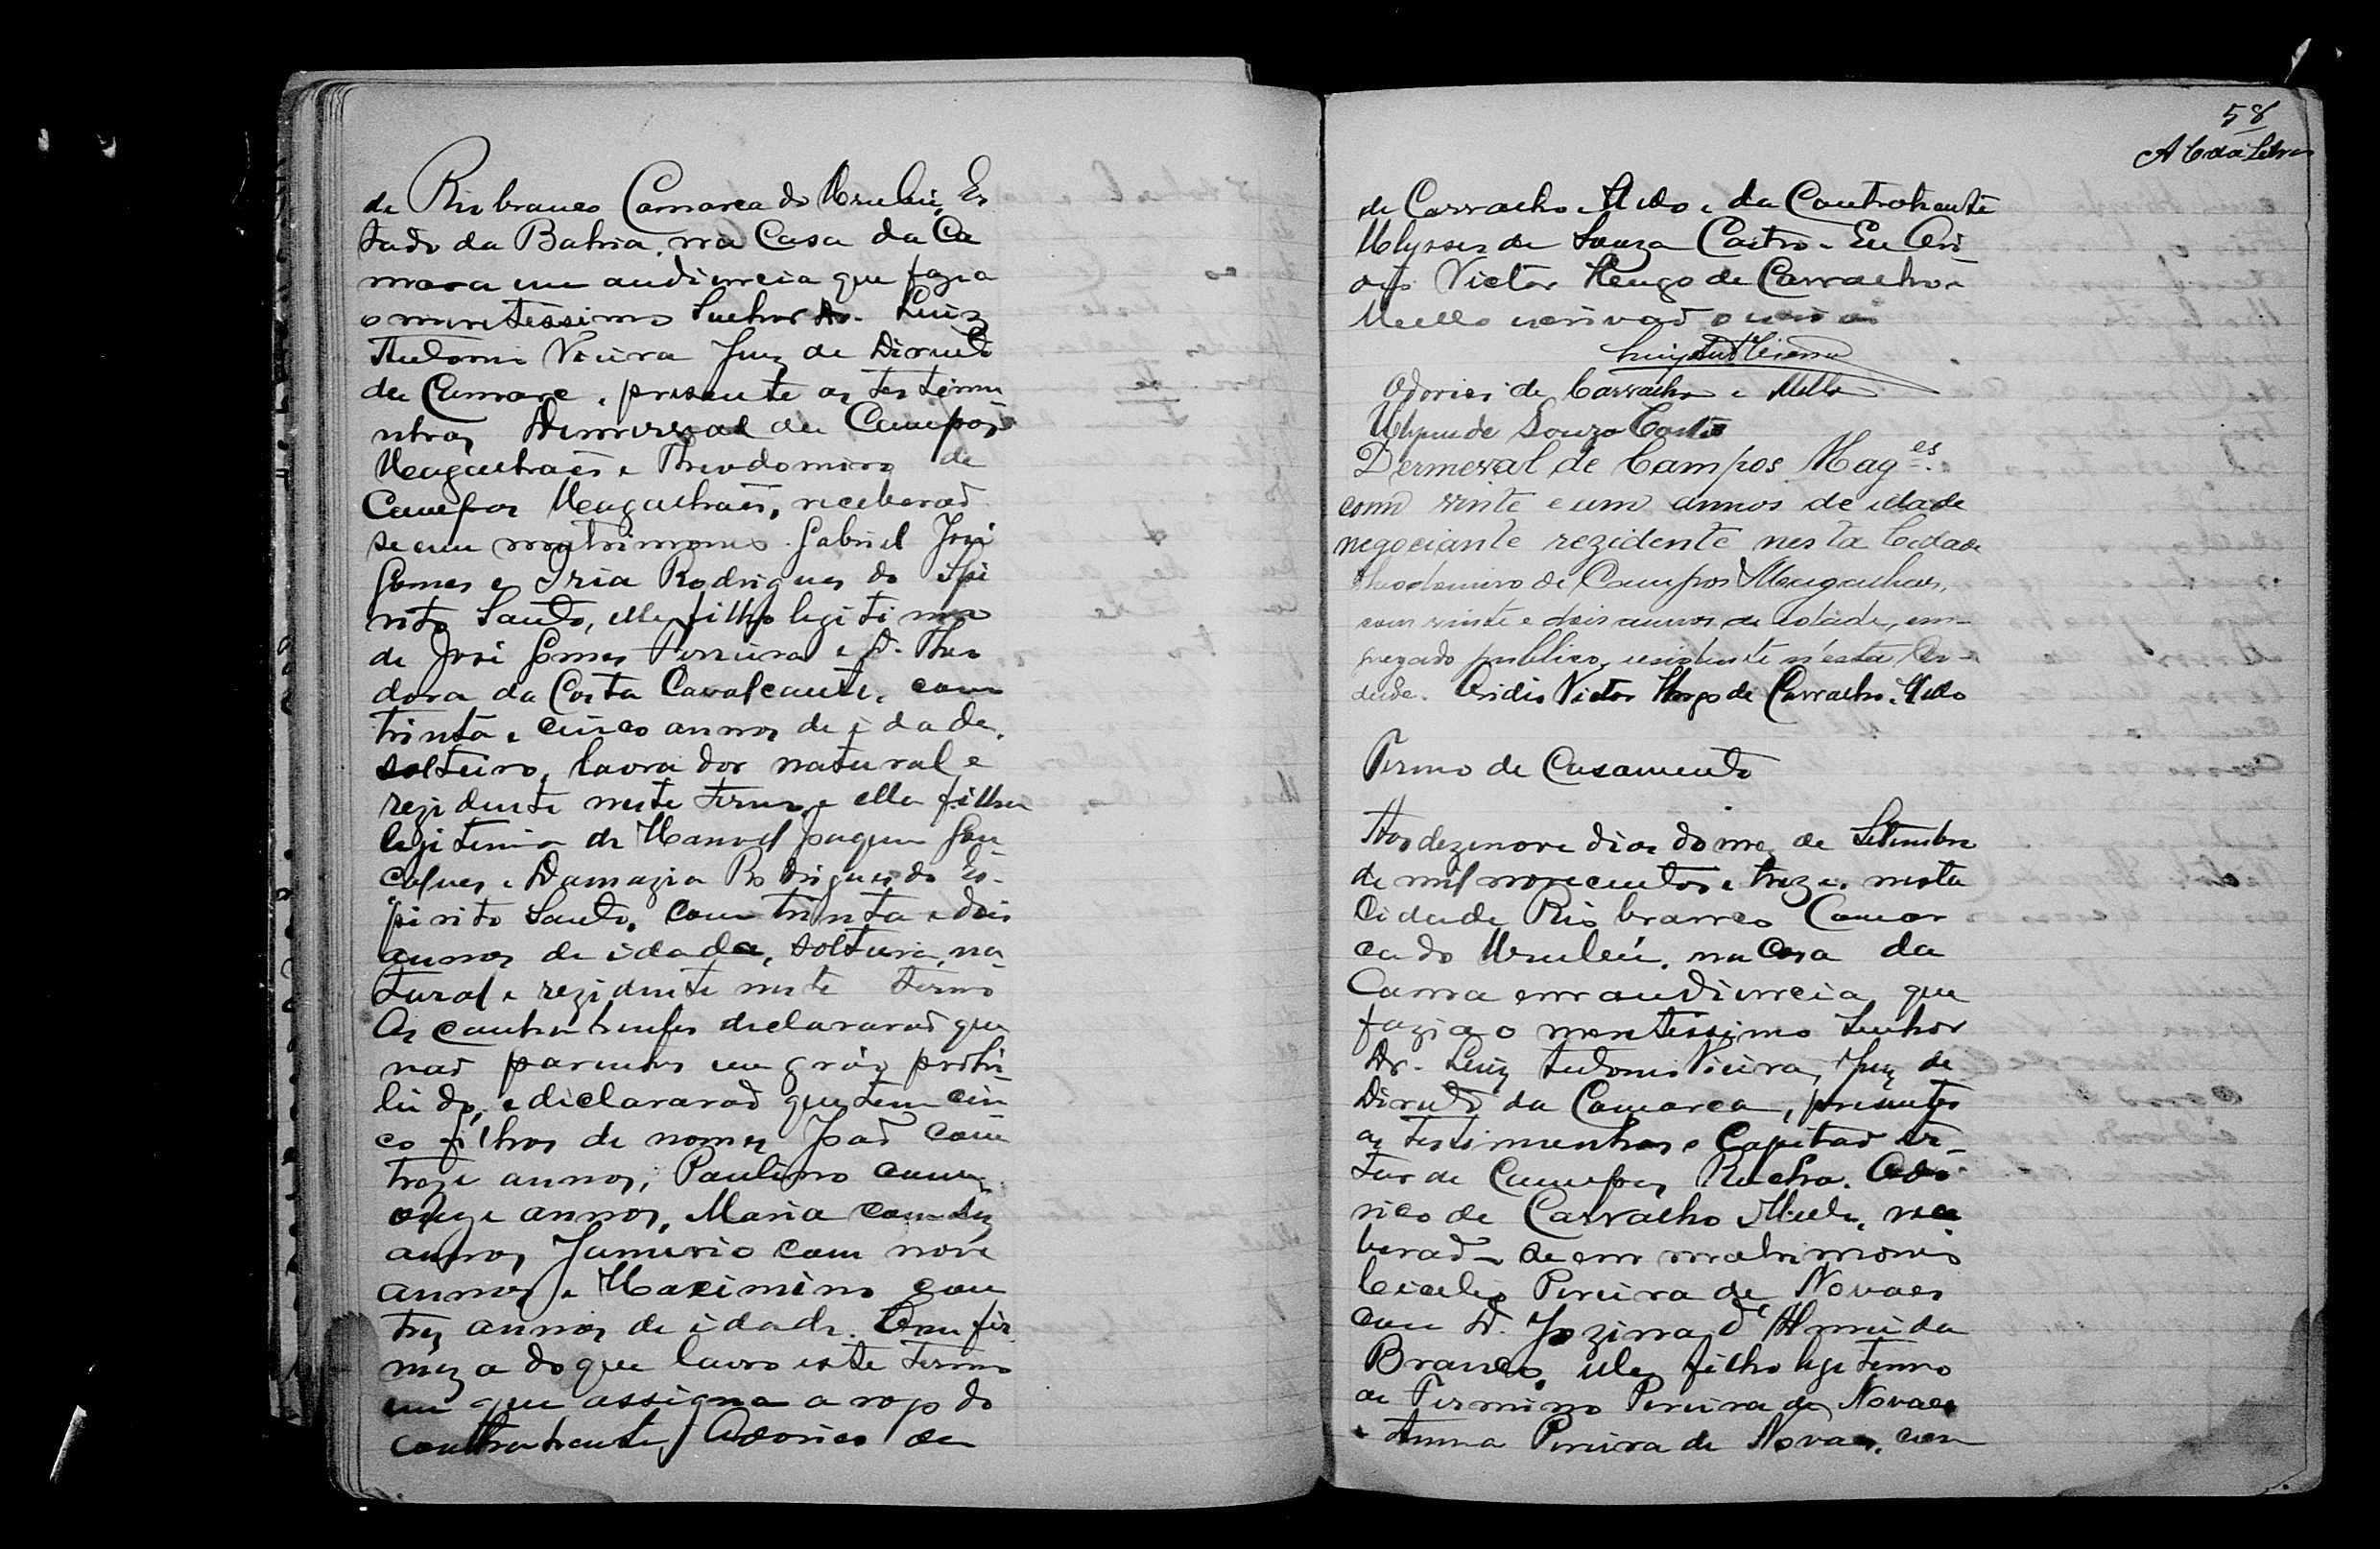 de Rio branco Camarca do Urubú, Es
tado da Bahia, na Casa da Ca
mara em audiencia que fazia
o meretissimo Senhor Dr. Luiz
Antonio Vieira Juiz de Direito
da Camarc, presente as testimu
nhas Dermeval de Campos
Magalhaes e Theodomiro de
Campos Magalhães, receberaõ
se em matrimonio Gabriel José
Gomes e Iria Rodrigues do Ispi
rito Santo, elle filho legitimo
de José Gomes Ferreira e D. Theo
dora da Costa Cavalcante, com
trinta e cinco annos de idade,
solteiro, lavrador natural e
rezidente neste termo, e ella filha
legitima de Manoel Joaquim Gon
calves e Damazia Rodrigues do Es-
pirito Santo, com trinta e dois
annos de idade, solteira, na-
tural e rezidente neste termo
Os contratentes declararaõ que
naõ parentes em gráo prohi-
bido, e diclararaõ que tem cin
co filhos de nomes Joaõ com
treze annos, Paulino com
onze annos, Maria com dez
annos, Januario com nove
annos, e Maximino com
tres annos de idade. Em fir
meza do que lavro este termo
em que assigna a rogo do
contratente, Odorico de
58
de Carvalho Mello e da Contratente
Ulysses de Souza Castro. Eu
Victor Hugo de Carvalho e
Mello escrivaõ o escrevi
Luiz Ant Vieira
Odorico de Carvalho e Mello
Ulysses de Souza Castro
Dermeval de Campos Mag.es
com vinte e um annos de idade
negociante rezidente nesta Cidade
Theodomiro de Campos Magalhães,
com vinte e dois annos de idade, em-
pregado publico, residente n'esta Ci-
dade. Victor Hugo de Carvalho e Mello
Termo de Casamento
Aos dezenove dias do mez de Setembro
de mil novecentos e treze, nesta
Cidade de Rio branco Camar
ca do Urubú, na Casa da
Camra em audiencia que
fazia o meretissimo Senhor
Dr. Luiz Antonio Vieira, Juiz de
Direito da Camarca, presentes
as testimunhas e Capitaõ Ar-
tur de Campos Rocha, Odo
rico de Carvalho Mello, rece
beraõ-se em matrimonio
Cicilio Pereira de Novaes
com D. Jozina d'Almeida
Branco, elle filho legitimo
de Firmino Pereira de Novaes
e Anna Pereira de Novaes, com